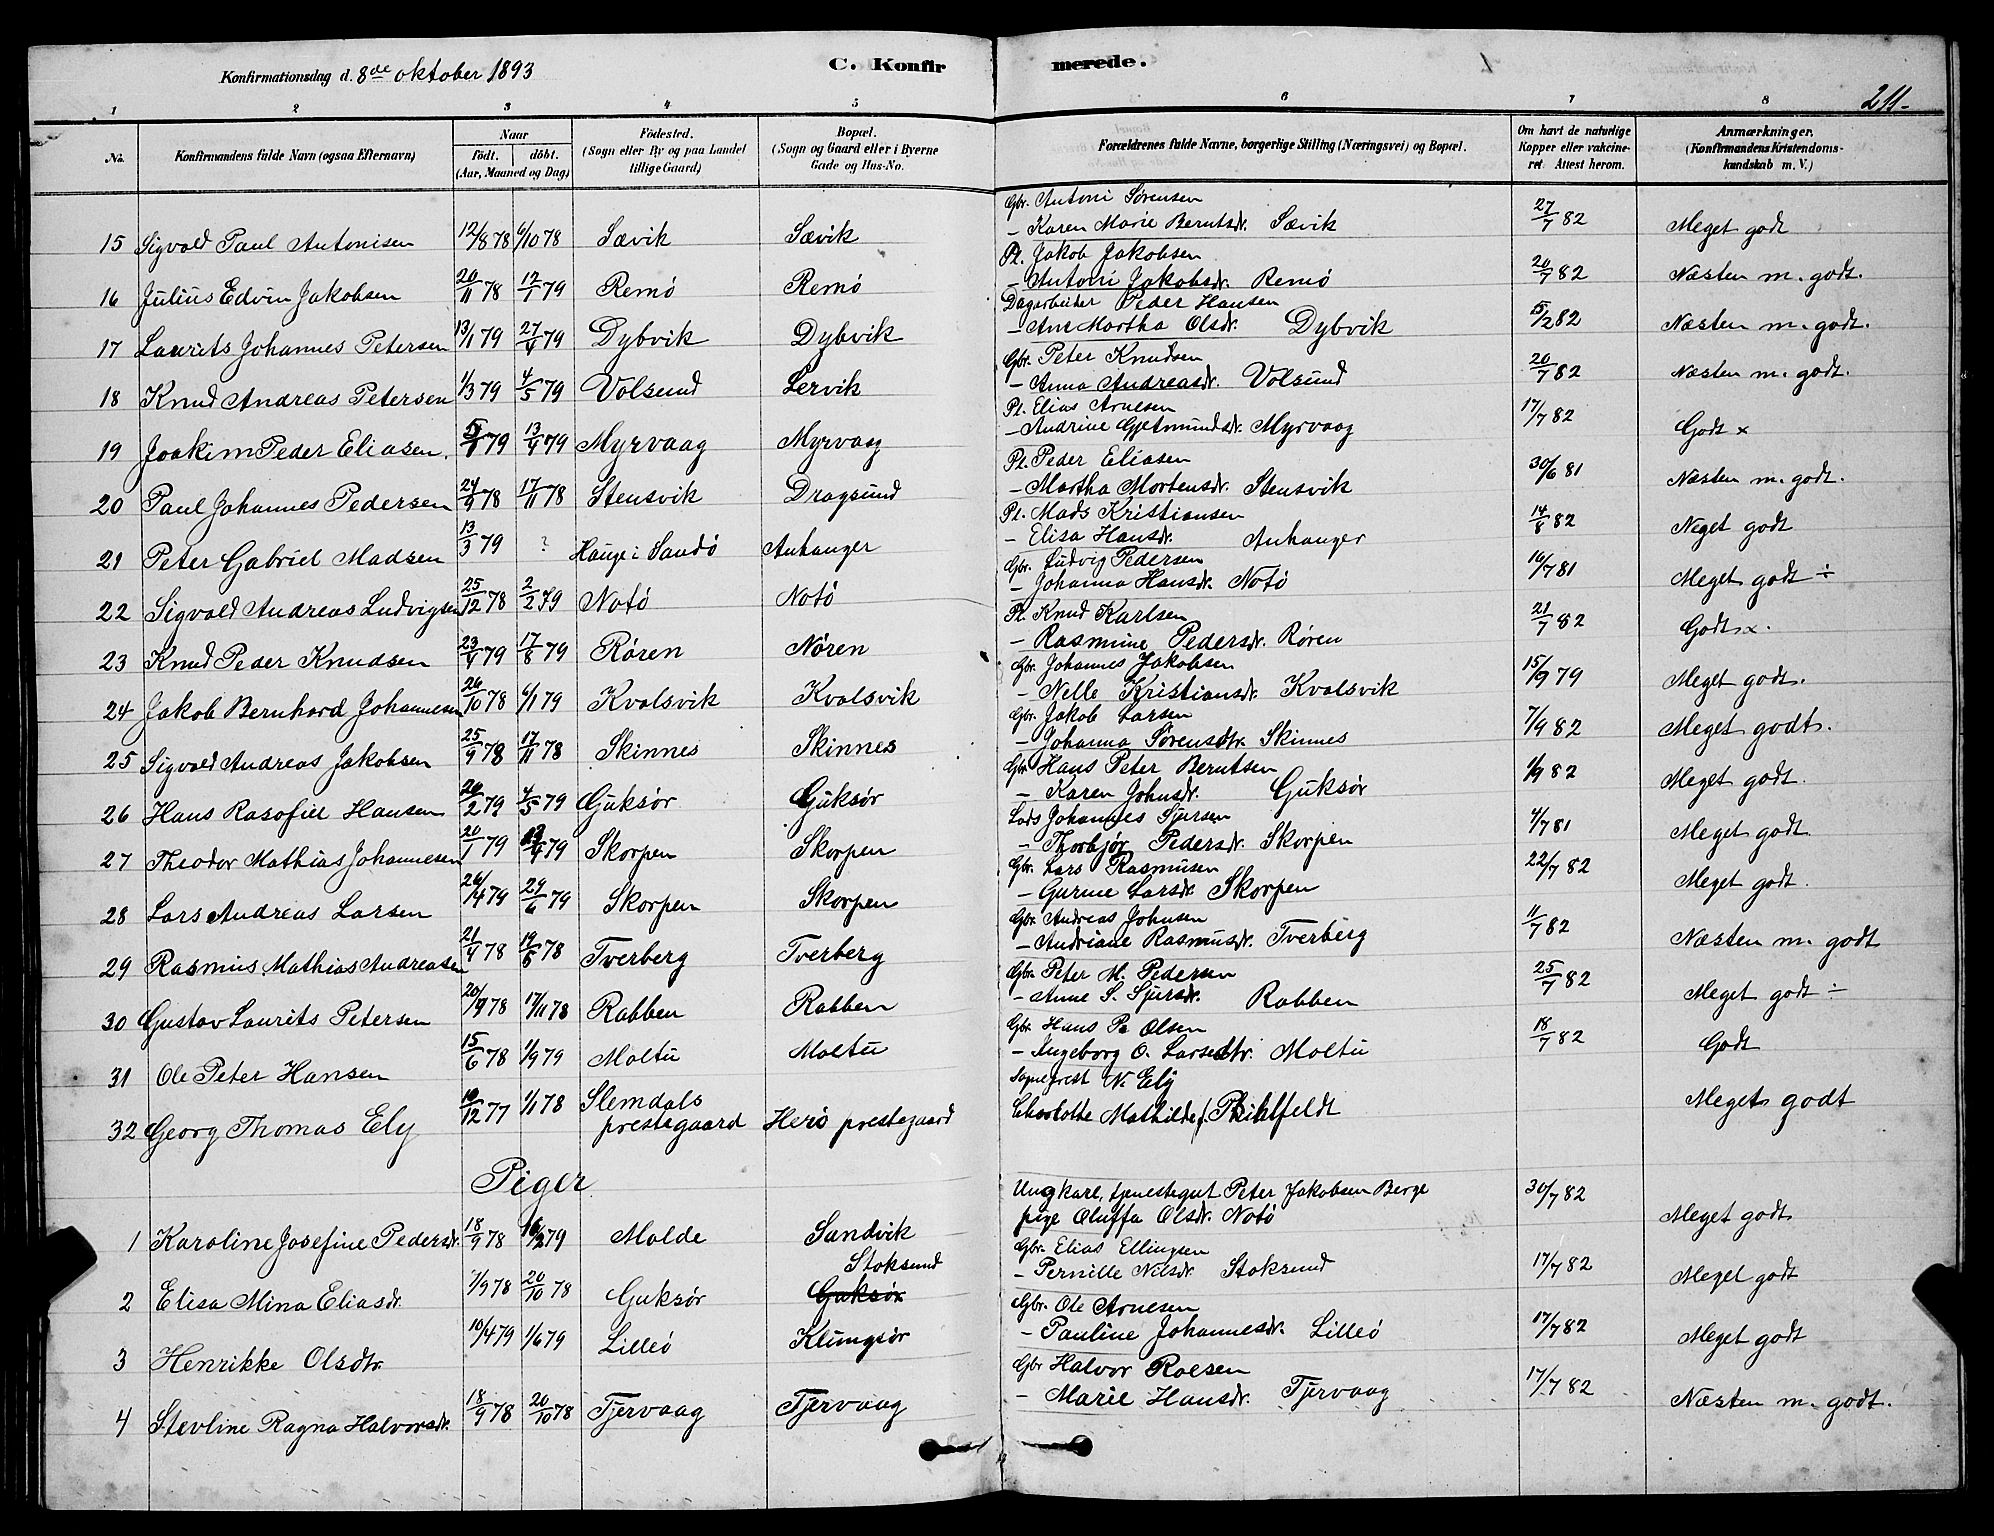 Konfirmationsdag d. 8de oktober 1893 C. Konfirmerede. 211-
1 2 3 4 5 6 7 8
No. Konfirmandens fulde Navn (ogsaa Efternavn) Naar födt. döbt. (Aar, Maaned og Dag) Födested. (Sogn eller By og paa Landet tillige Gaard) Bopæl. (Sogn og Gaard eller i Byerne Gade og Hus-No. Forældrenes fulde Navne, borgerlige Stilling (Næringsvei) og Bopæl. Om havt de naturlige Kopper eller vakcineret. Attest herom. Anmærkninger. (Konfirmandens Kristendomskundskab m. V.)
15 Sigvald Paul Antonisen 12/8 78 6/10 78 Sævik Sævik Gbr. Antoni Sørensen - Karen Marie Berntsdr. Sævik 27/7 82 Meget godt
16 Julius Edvin Jakobsen 20/11 78 12/1 79 Remö Remö Pl. Jakob Jakobsen - Antoni Jakobsdr. Remö 20/7 82 Næsten m. godt.
17 Laurits Johannes Petersen 13/1 79 27/4 79 Dybvik Dybvik Dagarbeider Peder Hansen - Ane Martha Olsdr. Dybvik 5/2 82 Næsten m. godt.
18 Knud Andreas Petersen 1/3 79 4/5 79 Volsund Lervik Gbr. Peter Knudsen - Anna Andreasdr. Volsund 20/7 82 Næsten m. godt.
19 Joakim Peder Eliasen. 79 13/4 79 Myrvaag Myrvaag Pl. Elias Arnesen - Andrine Gjetmundsdr. Myrvaag 17/7 82 Godt x
20 Paul Johannes Pedersen 24/9 78 17/11 78 Stensvik Dragsund Pl. Peder Eliasen - Martha Mortensdr. Stensvik 30/6 81 Næsten m. godt.
21 Peter Gabriel Madsen 13/3 79 ? Hauge i Sandö Anhanger Pl. Mads Kristiansen - Elisa Hansdr. Anhanger 14/8 82 Neget godt
22 Sigvald Andreas Ludvigsen 25/12 78 2/2 79 Notö Notö Gbr. Ludvig Pedersen - Johanna Hansdr. Notö 16/7 81 Meget godt ÷
23 Knud Peder Knudsen 23/4 79 17/8 79 Røren Nøren Pl. Knud Karlsen - Rasmine Pedersdr. Røren 21/7 82 Godt x.
24 Jakob Bernhard Johannesen 26/10 78 6/1 79 Kvalsvik Kvalsvik Gbr. Johannes Jakobsen - Nelle Kristiansdr. Kvalsvik 15/9 79 Meget godt.
25 Sigvald Andreas Jakobsen 25/9 78 17/11 78 Skinnes Skinnes Gbr. Jakob Larsen - Johanna Sørensdtr. Skinnes 7/9 82 Meget godt.
26 Hans Rasofiel Hansen 20/2 79 4/5 79 Gjuksør Gjuksør Gbr. Hans Peter Berntsen - Karen Johnsdr. Guksør 1/9 82 Meget godt.
27 Theodor Mathias Johannesen 20/1 79 79 Skorpen Skorpen Lods Johannes Sjursen - Thorbjør Pedersdr. Skorpen 4/7 81 Meget godt
28 Lars Andreas Larsen 26/4 79 29/6 79 Skorpen Skorpen Gbr. Lars Rasmusen - Gurine Larsdr. Skorpen 22/7 82 Meget godt.
29 Rasmus Mathias Andreasen 21/4 78 19/5 78 Tverberg Tverberg Gbr. Andreas Johnsen - Andriane Rasmusdr. Tverberg 11/7 82 Næsten m. godt
30 Gustav Laurits Petersen 20/9 78 17/11 78 Rabben Rabben Gbr. Peter M. Pedersen - Anne S. Sjursdr. Rabben 25/7 82 Meget godt ÷
31 Ole Peter Hansen 15/6 78 1/9 79 Moltu Moltu Gbr. Hans Pe Olsen - Ingeborg O. Larsdtr. Moltu 18/7 82 Godt
32 Georg Thomas Ely 10/12 77 1/1 78 Slemdals prestegaard Herö prestegaard Sogneprest N. Ely Charlotte Mathilde f. Meget godt
Piger
1 Karoline Josefine Pedersdr. 18/9 78 16/2 79 Molde Sandvik Ungkarl, tjenestegut Peter Jakobsen Berge pige Oluffa Olsdr. Notö 30/7 82 Meget godt
2 Elisa Mina Eliasdr. 7/9 78 20/10 78 Guksør Stoksund Guksør Gbr. Elias Ellingsen - Pernille Nilsdr. Stoksund 17/7 82 Meget godt
3 Henrikke Olsdtr. 10/4 79 1/6 79 Lilleö Klungsör Gbr. Ole Arnesen - Pauline Johannesdr. Lilleö 17/7 82 Meget godt
4 Stevline Ragna Halvorsdr. 18/9 78 20/10 78 Tjervaag Tjervaag Gbr Halvor Roesen - Marie Hansdr. Tjervaag 17/7 82 Næsten m. godt.